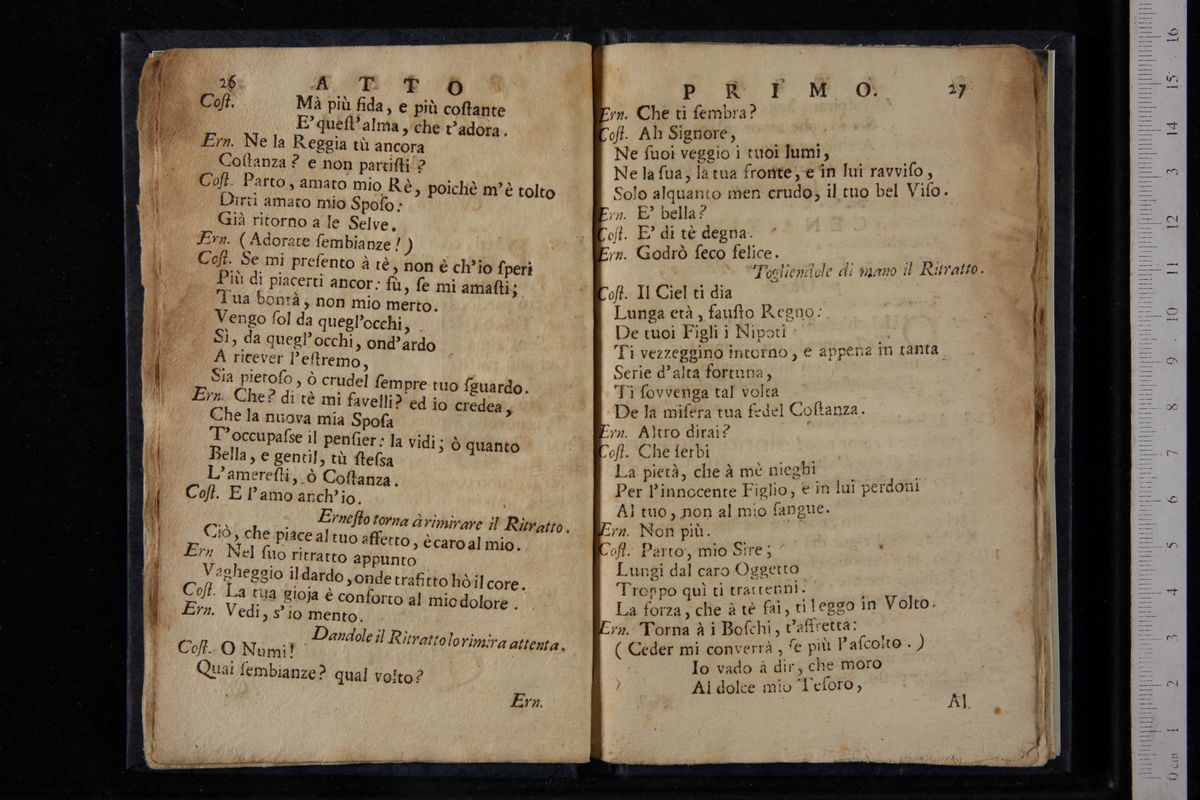 26 ATTO
Coſt. Mà più fida, e più coſtante
E' queſt'alma, che t'adora.
Ern. Ne la Reggia tù ancora
Coſtanza? e non partiſti?
Coſt. Parto, amato mio Rè, poichè m'è tolto
Dirti amato mio Spoſo:
Già ritorno a le Selve.
Ern. (Adorate ſembianze!)
Coſt. Se mi preſento à tè, non è ch'io ſperi
Più di piacerti ancor: fù, ſe mi amaſti;
Tua bontà, non mio merto.
Vengo ſol da quegl'occhi,
Sì, da quegl'occhi, ond'ardo
A ricever l'eſtremo,
Sia pietoſo, ò crudel ſempre tuo ſguardo.
Ern. Che? di tè mi favelli? ed io credea,
Che la nuova mia Spoſa
T'occupaſse il penſier: la vidi; ò quanto
Bella, e gentil, tù ſteſsa
L'amereſti, ò Coſtanza.
Coſt. E l'amo anch'io.
Erneſto torna à rimirare il Ritratto.
Ciò, che piace al tuo affetto, è caro al mio.
Ern Nel ſuo ritratto appunto
Vagheggio il dardo, onde trafitto hò il core.
Coſt. La tua gioja è conforto al mio dolore.
Ern. Vedi, s'io mento.
Dandole il Ritratto lo rimira attenta.
Coſt. O Numi!
Quai ſembianze? qual volto?
Ern.
PRIMO. 27
Ern. Che ti ſembra?
Coſt. Ah Signore,
Ne ſuoi veggio i tuoi lumi,
Ne la ſua, la tua fronte, e in lui ravviſo,
Solo alquanto men crudo, il tuo bel Viſo.
Ern. E' bella?
Coſt. E' di tè degna.
Ern. Godrò ſeco felice.
Togliendole di mano il Ritratto.
Coſt. Il Ciel ti dia
Lunga età, fauſto Regno:
De tuoi Figli i Nipoti
Ti vezzeggino intorno, e appena in tanta
Serie d'alta fortuna,
Ti ſovvenga tal volta
De la miſera tua fedel Coſtanza.
Ern. Altro dirai?
Coſt. Che ſerbi
La pietà, che à mè nieghi
Per l'innocente Figlio, e in lui perdoni
Al tuo, non al mio ſangue.
Ern. Non più.
Coſt. Parto, mio Sire;
Lungi dal caro Oggetto
Troppo quì ti trattenni.
La forza, che à tè fai, ti leggo in Volto.
Ern. Torna à i Boſchi, t'affretta:
(Ceder mi converrà, ſe più l'aſcolto.)
Io vado à dir, che moro
Al dolce mio Teſoro,
Al.